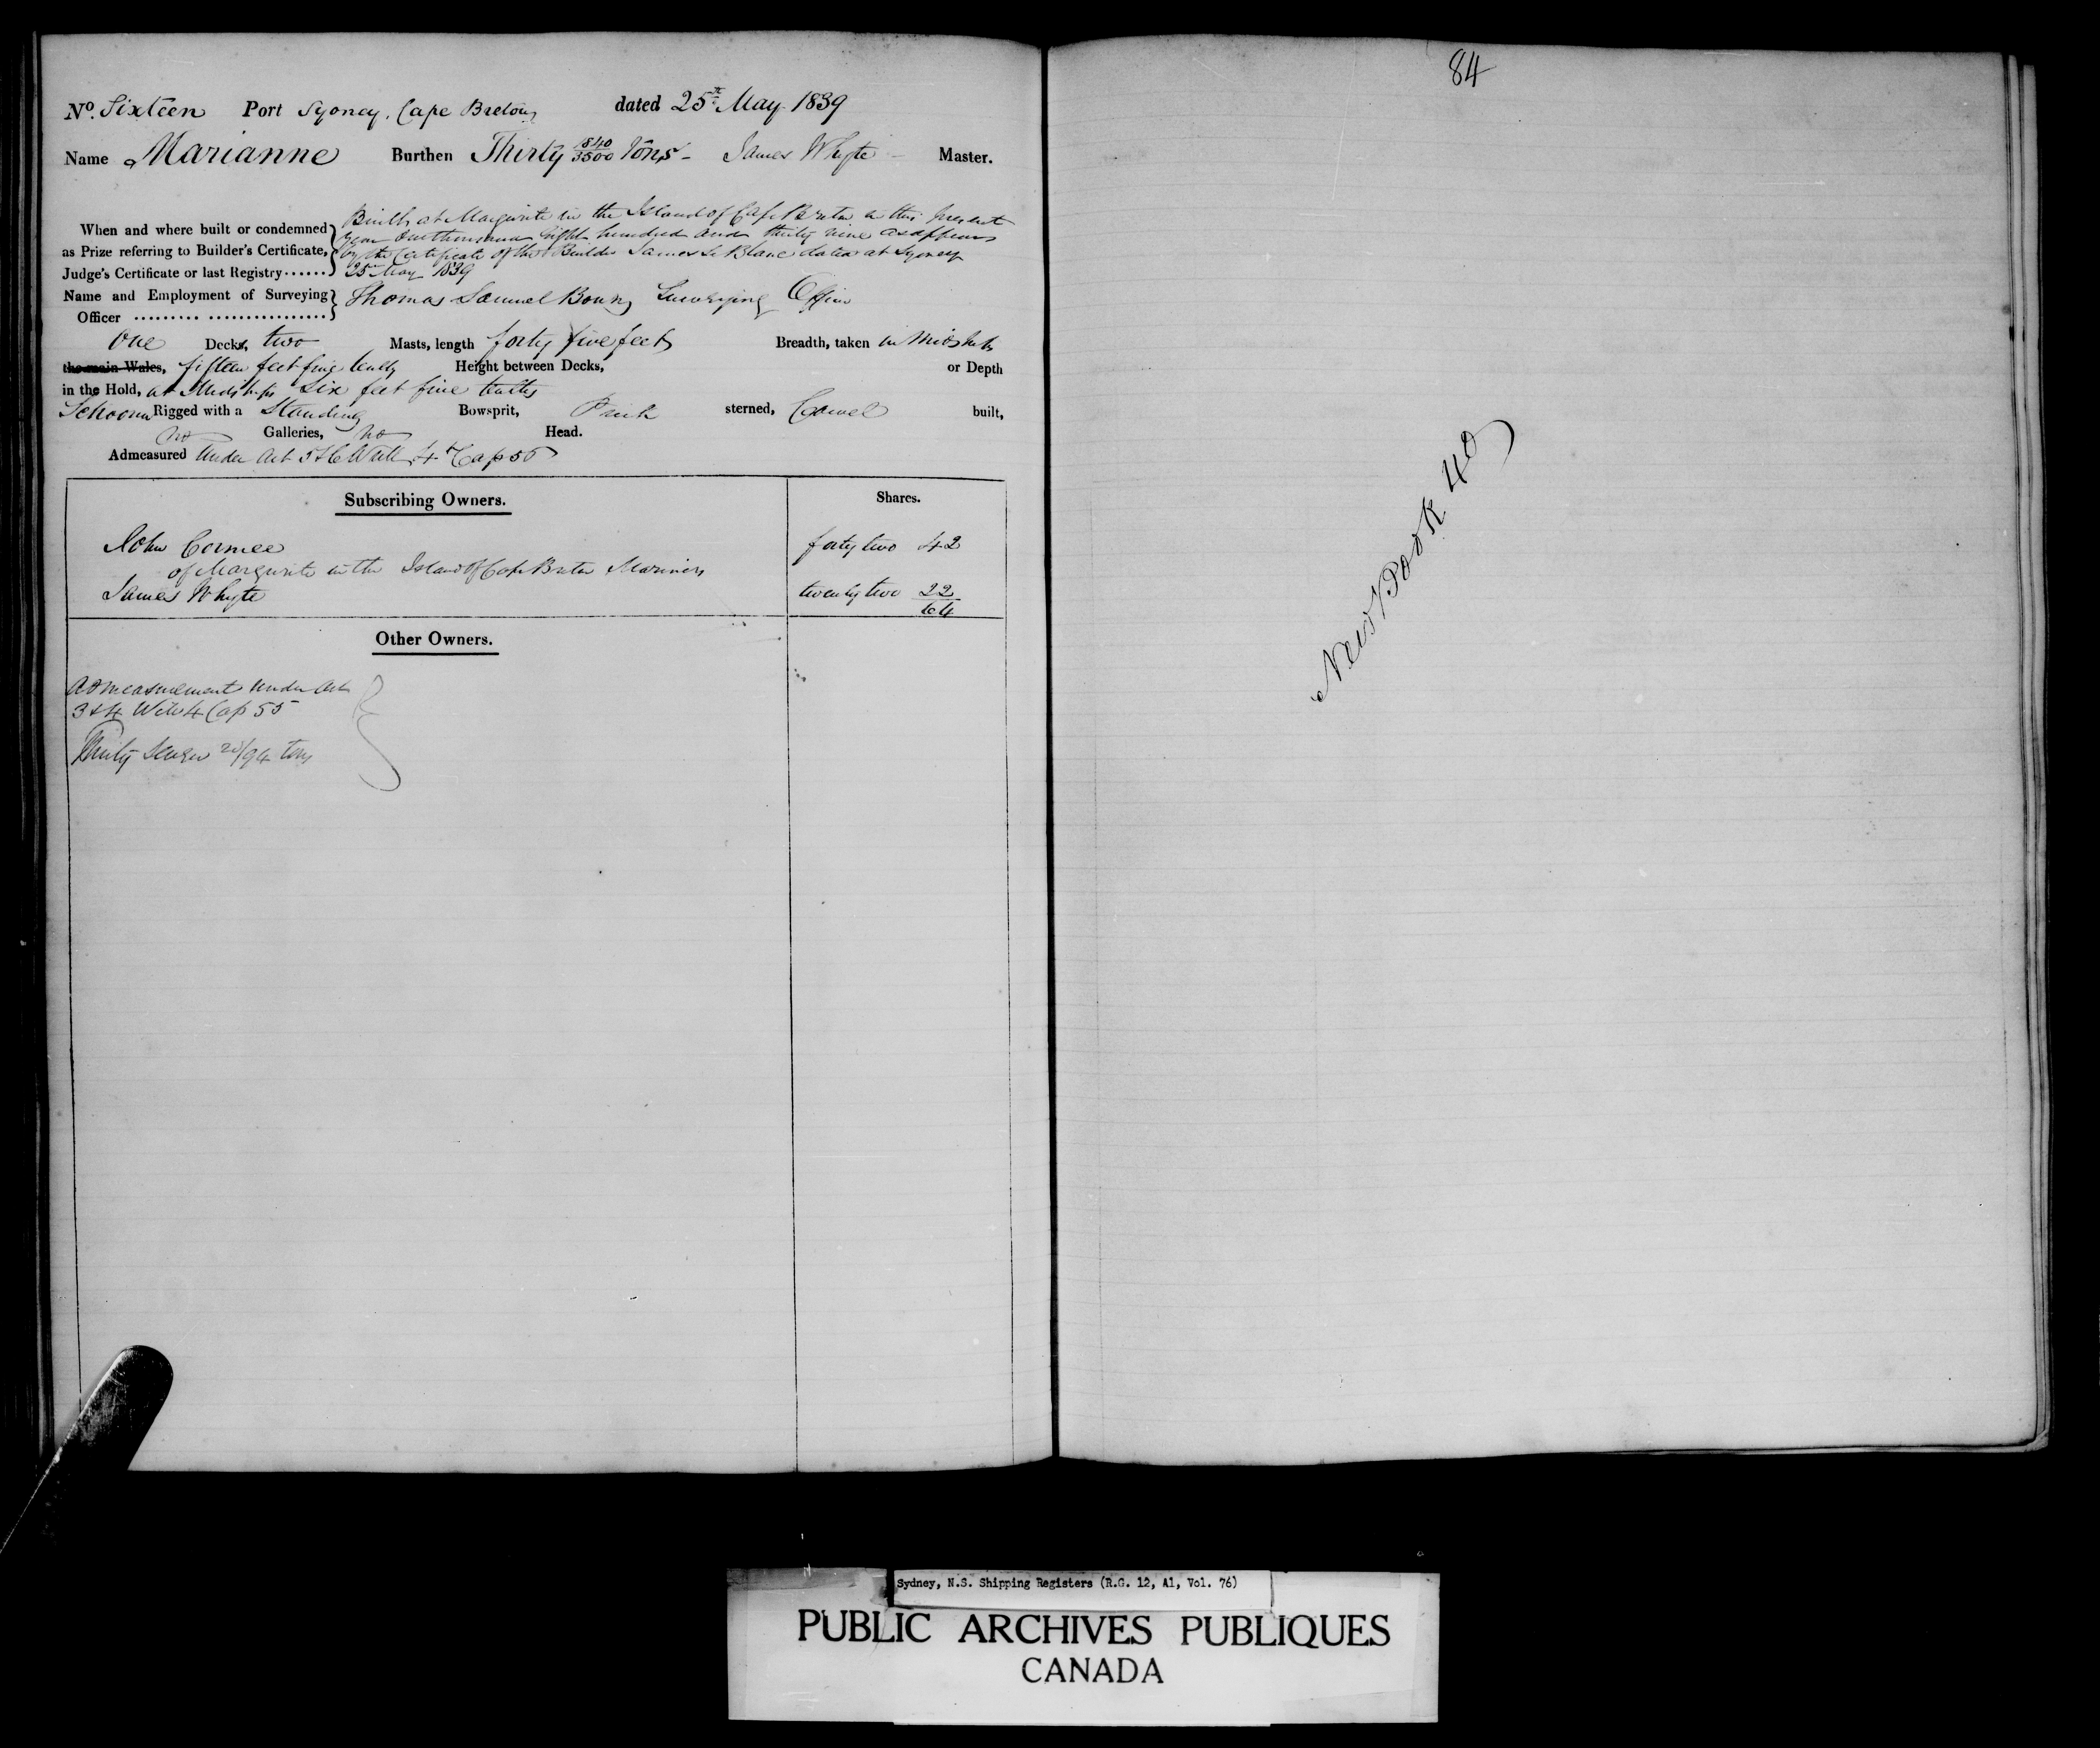 No. Sixteen Port Sydney, Cape Breton dated 25th May 1839
Name Marianne Burthen Thirty 840/3500 Tons - James Whyte - Master.
When and where built or condemned as Prize referring to Builder's Certificate, Judge's Certificate or last Registry ......
Built at Margurite in the Island of Cape Breton in this present
year One thousand Eight hundred and thirty nine as appears
by the Certificate of the Builder James Le Blanc dated at Sydney
25 May 1839
Name and Employment of Surveying Officer ......... ................ Thomas Samuel Bown Surveying Officer
One Decks, two Masts, length forty five feet Breadth, taken in Midships
the main Wales, fifteen feet five tenths Height between Decks, or Depth
in the Hold, at Midships Six feet five tenths
Schooner Rigged with a Standing Bowsprit, Pink sterned, Carvel built,
no Galleries, no Head.
Admeasured Under Act 5 & 6 Will 4th Cap 56
Subscribing Owners. Shares.
John Cormee forty two 42
of Margurite in the Island of Cape Breton Mariners
James Whyte twenty two 22
64
Other Owners.
Admeasurement Under Act
3 & 4 Will 4 Cap 55
Thirty Seven 20/94 tons
84
New Book 40
Sydney, N.S. Shipping Registers (R.G. 12, A1, Vol. 76)
PUBLIC ARCHIVES PUBLIQUES
CANADA